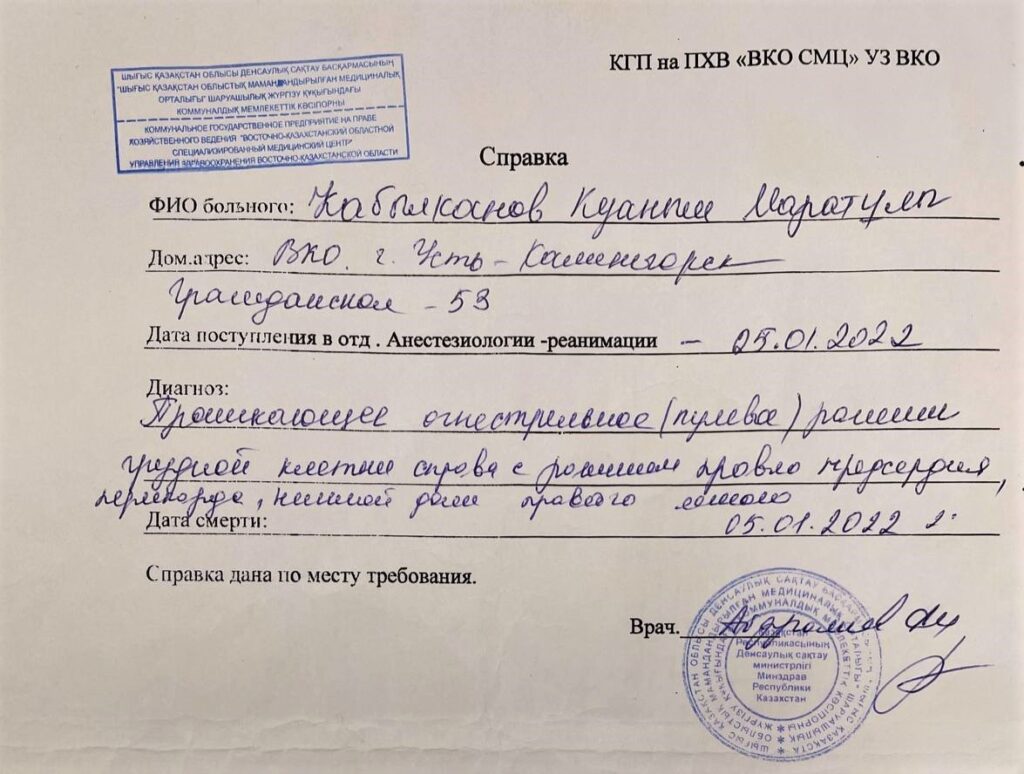 КГП на ПХВ «ВКО СМЦ» УЗ ВКО
ШЫҒЫС ҚАЗАҚСТАН ОБЛЫСЫ ДЕНСАУЛЫҚ САҚТАУ БАСҚАРМАСЫНЫҢ
"ШЫҒЫС ҚАЗАҚСТАН ОБЛЫСТЫҚ МАМАНДАНДЫРЫЛҒАН МЕДИЦИНАЛЫҚ
ОРТАЛЫҒЫ" ШАРУАШЫЛЫҚ ЖҮРГІЗУ ҚҰҚЫҒЫНДАҒЫ
КОММУНАЛДЫҚ МЕМЛЕКЕТТІК КӘСІПОРНЫ
КОММУНАЛЬНОЕ ГОСУДАРСТВЕННОЕ ПРЕДПРИЯТИЕ НА ПРАВЕ
ХОЗЯЙСТВЕННОГО ВЕДЕНИЯ "ВОСТОЧНО-КАЗАХСТАНСКИЙ ОБЛАСТНОЙ
СПЕЦИАЛИЗИРОВАННЫЙ МЕДИЦИНСКИЙ ЦЕНТР"
УПРАВЛЕНИЯ ЗДРАВООХРАНЕНИЯ ВОСТОЧНО-КАЗАХСТАНСКОЙ ОБЛАСТИ
Справка
ФИО больного: Кабылканов Куаныш Маратулы
Дом.адрес: ВКО. г. Усть-Каменогорск
Гражданская - 53
Дата поступления в отд . Анестезиологии -реанимации - 05.01.2022
Диагноз:
Проникающее огнестрельное (пулевое) ранение
грудной клетки справа с ранением правого предсердия,
перикарда, нижней доли правого легкого
Дата смерти: 05.01.2022 г.
Справка дана по месту требования.
Врач.
Қазақстан
Республикасының
Денсаулық сақтау
министрлігі
Минздрав
Республики
Казахстан